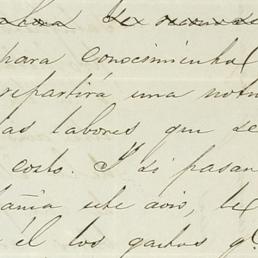 para conocimien
repartirá una not
as labores que se
costo. Y si pasan
añia este avis, le
él los gastos q